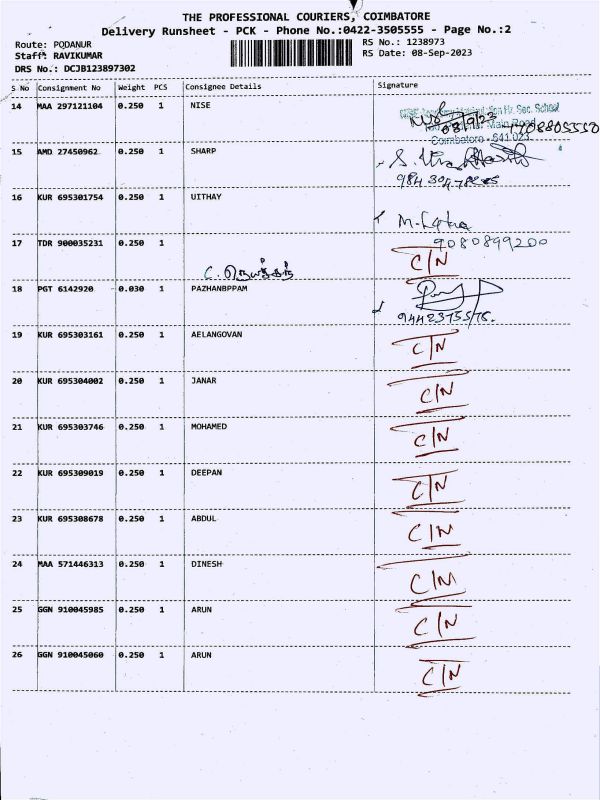 THE PROFESSIONAL COURIERS, COIMBATORE
Delivery Runsheet - PCK - Phone No.:0422-3505555 - Page No.:2
Route: PODANUR RS No.: 1238973
Staff: RAVIKUMAR RS Date: 08-Sep-2023
DRS No.: DCJB123897302
S No Consignment No Weight PCS Consignee Details Signature
14 MAA 297121104 0.250 1 NISE
Hr. Sec. School
08/9/23 Main Road
7708805550
Coimbatore - 641 023
15 AMD 27450962 0.250 1 SHARP
16 KUR 695301754 0.250 1 UITHAY
M. Latha
9080899200
17 TDR 900035231 0.250 1 C/N
18 PGT 6142920 0.030 1 PAZHANBPPAM
9442375578.
19 KUR 695303161 0.250 1 AELANGOVAN C/N
20 KUR 695304002 0.250 1 JANAR C/N
21 KUR 695303746 0.250 1 MOHAMED C/N
22 KUR 695309019 0.250 1 DEEPAN C/N
23 KUR 695308678 0.250 1 ABDUL C/N
24 MAA 571446313 0.250 1 DINESH C/N
25 GGN 910045985 0.250 1 ARUN C/N
26 GGN 910045060 0.250 1 ARUN C/N